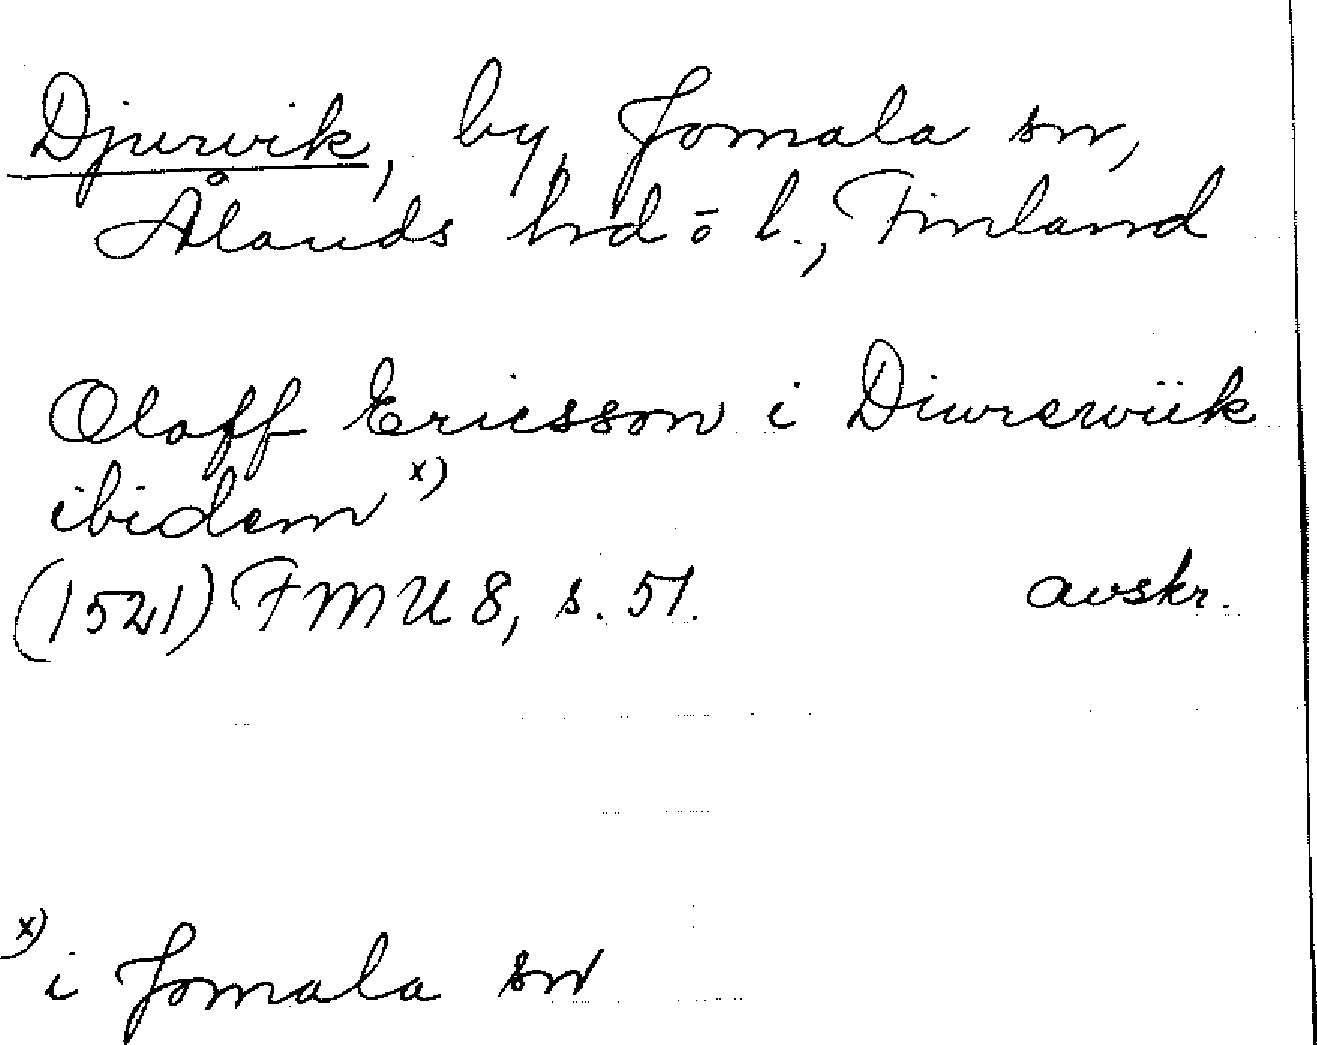 Djurvik, by, Jomala sn,
Ålands hrd o l., Finland
Olaff Ericsson i Diwrewiik
ibidem x)
(1521) FMU 8, s. 51. avskr.
x) i Jomala sn